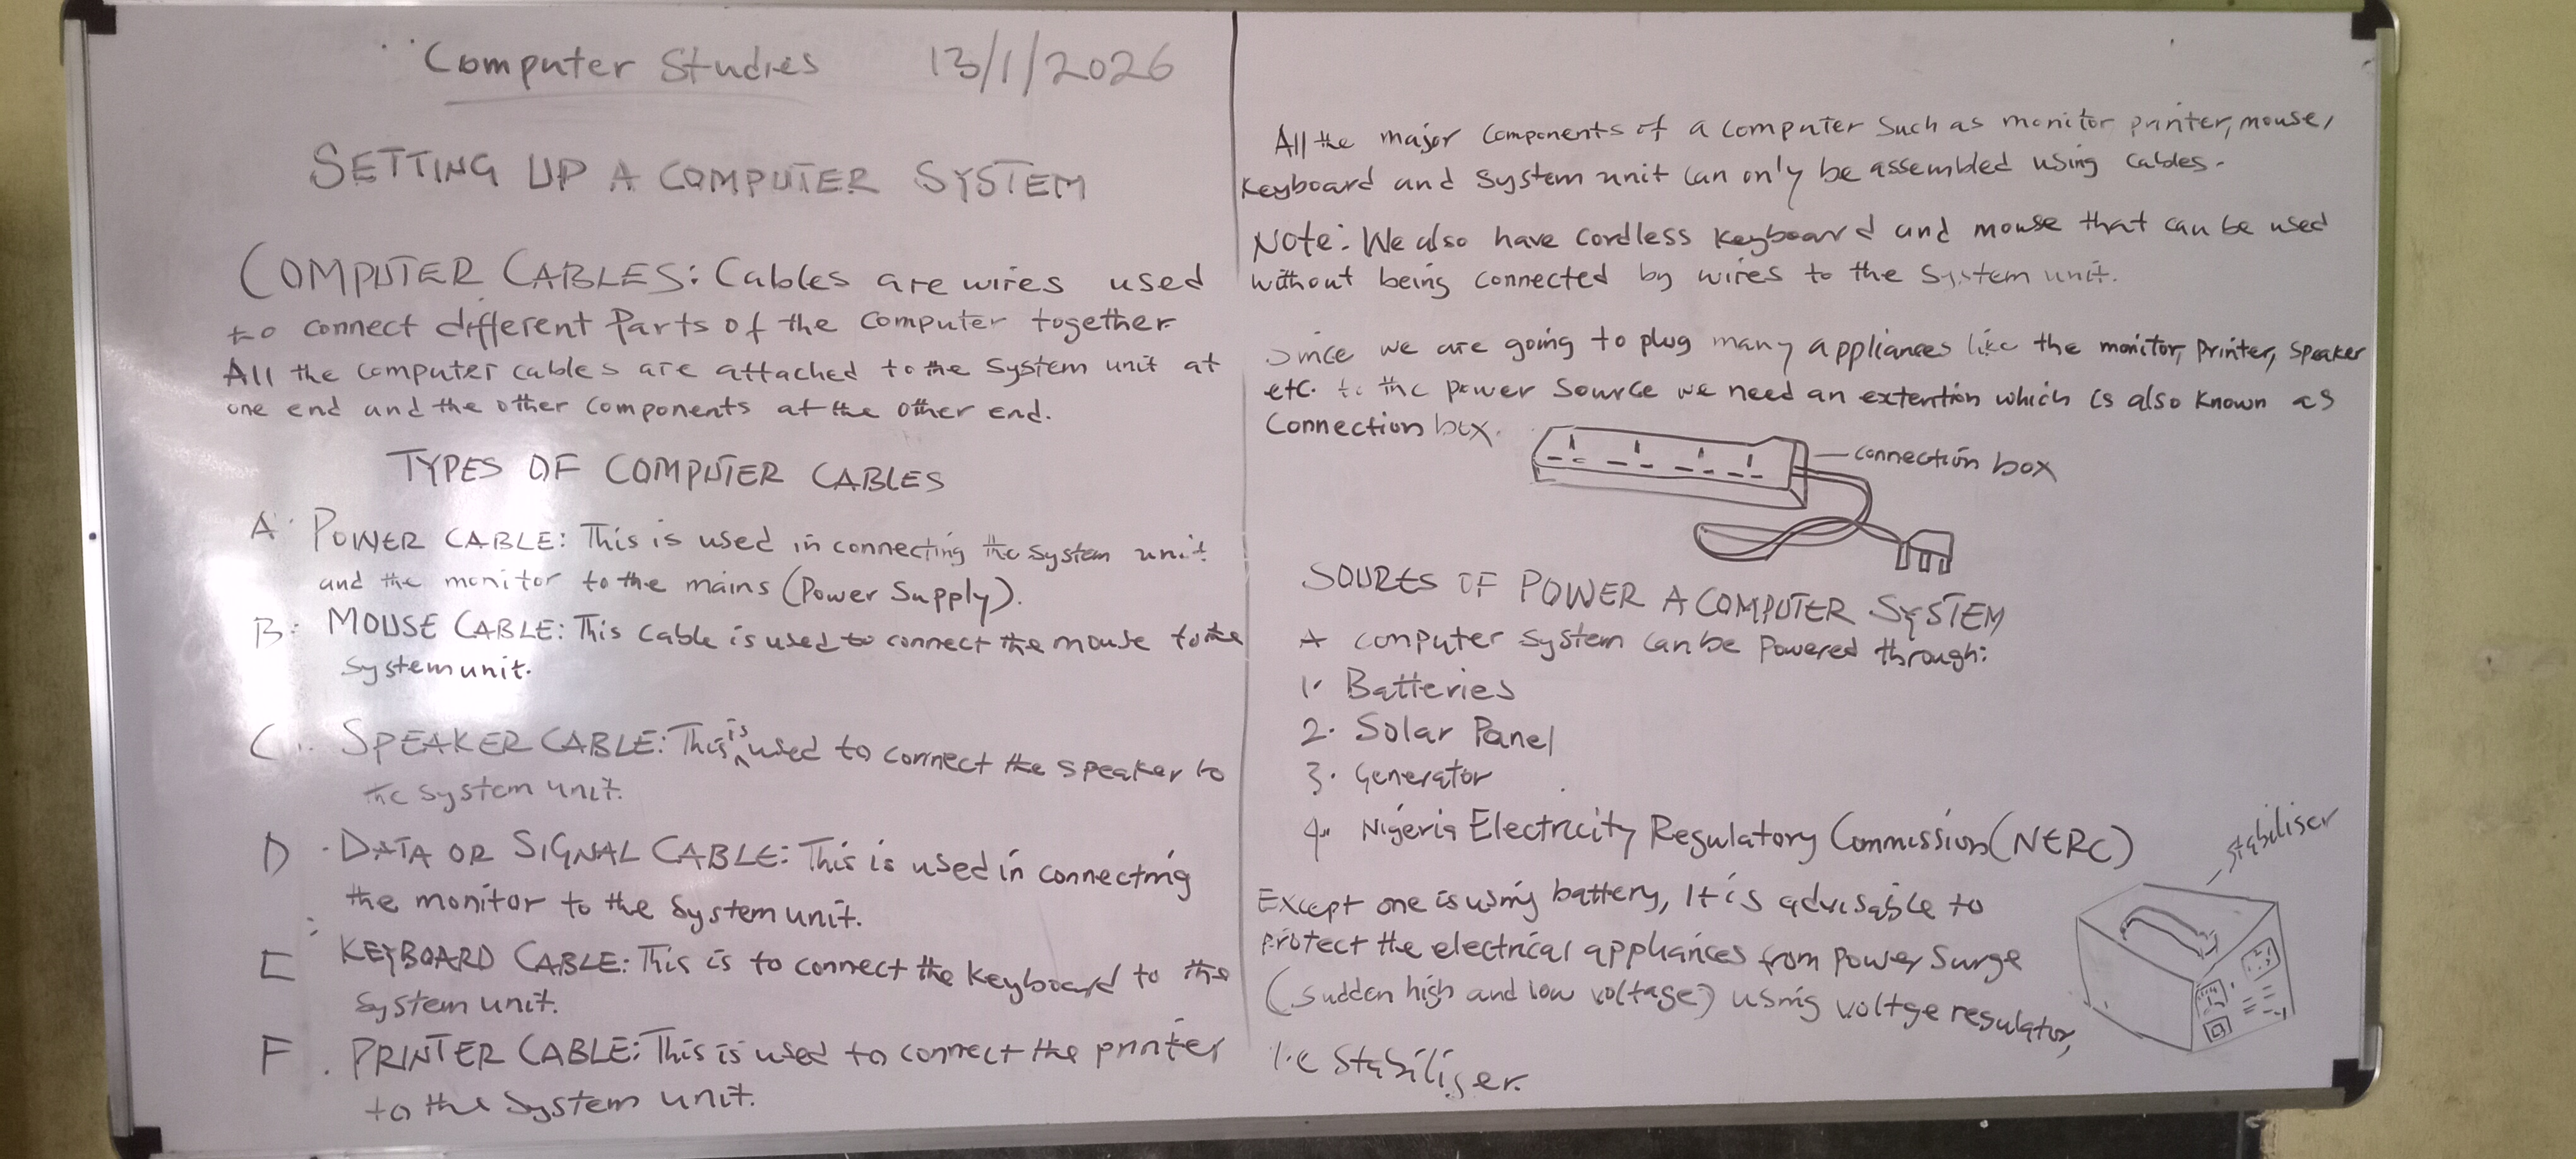 Computer Studies 13/1/2026
SETTING UP A COMPUTER SYSTEM
COMPUTER CABLES: Cables are wires used
to connect different Parts of the Computer together.
All the computer cables are attached to the system unit at
one end and the other components at the other end.
TYPES OF COMPUTER CABLES
A. POWER CABLE: This is used in connecting the system unit
and the monitor to the mains (Power Supply).
B: MOUSE CABLE: This cable is used to connect the mouse to the
system unit.
C. SPEAKER CABLE: This is used to connect the speaker to
the system unit.
D. DATA OR SIGNAL CABLE: This is used in connecting
the monitor to the system unit.
E KEYBOARD CABLE: This is to connect the keyboard to the
system unit.
F. PRINTER CABLE: This is used to connect the printer
to the system unit.
All the major components of a computer such as monitor, printer, mouse,
keyboard and system unit can only be assembled using cables.
Note: We also have cordless keyboard and mouse that can be used
without being connected by wires to the system unit.
Since we are going to plug many appliances like the monitor, printer, speaker
etc. to the power source we need an extention which is also known as
Connection box.
connection box
SOURES OF POWER A COMPUTER SYSTEM
A computer system can be powered through:
1. Batteries
2. Solar Panel
3. Generator
4. Nigeria Electricity Regulatory Commission (NERC)
stabiliser
Except one is using battery, It is advisable to
protect the electrical appliances from power surge
(sudden high and low voltage) using voltge regulator,
i.e stabiliser.